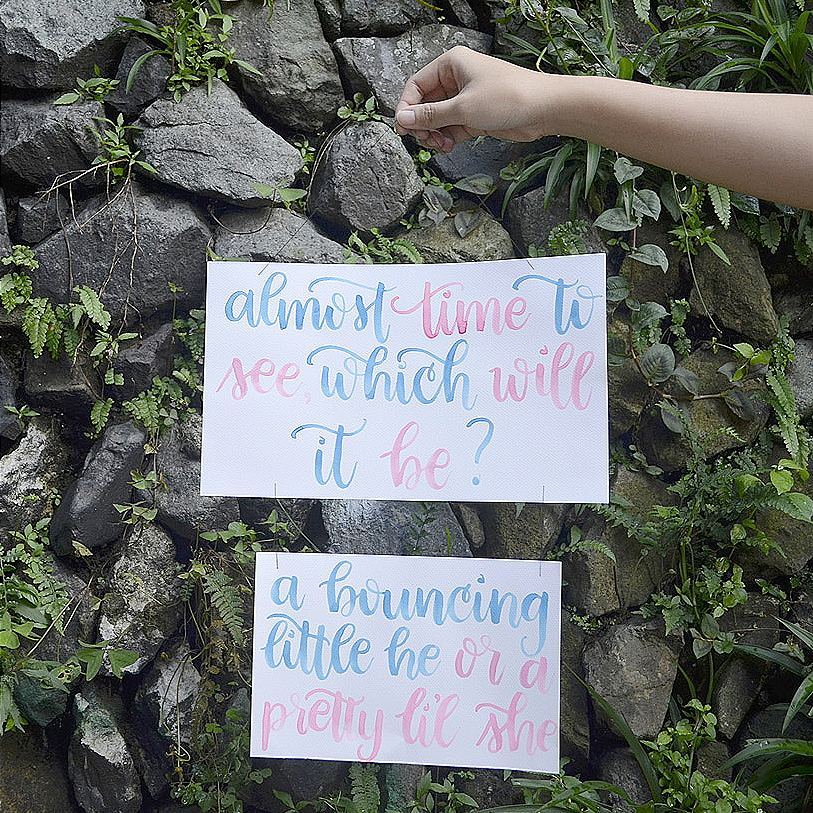 almost time to
see, which will
it be?
a bouncing
little he or a
pretty li'l she